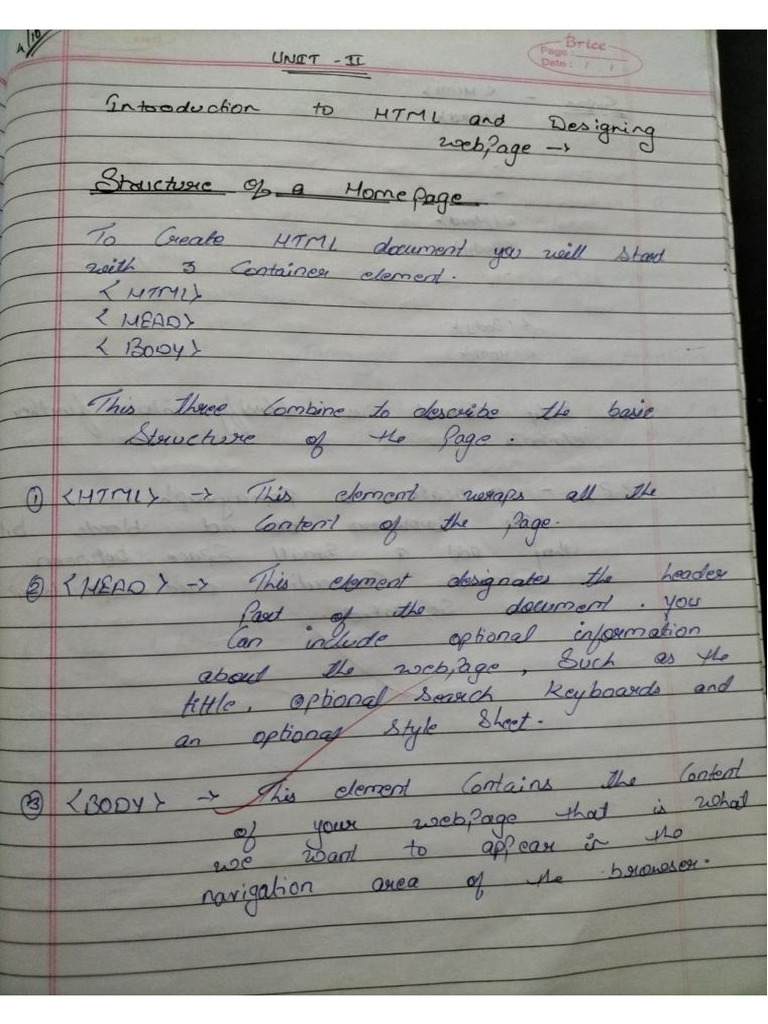 4/10
Brice
Page:
Date: / /
UNIT - II
Introduction to HTML and Designing
webpage →
Structure of a Homepage
To Create HTML document you will start
with 3 Container element.
<HTML>
<HEAD>
<BODY>
This three Combine to describe the basic
Structure of the Page.
① <HTML> → This element wraps all the
Content of the page.
② <HEAD> → This element designates the header
Part of the document. You
Can include optional information
about the webpage, Such as the
tittle, optional Search Keyboards and
an optional Style Sheet.
③ <BODY> → This element Contains the Content
of your webpage that is what
we want to appear in the
navigation area of the browser.